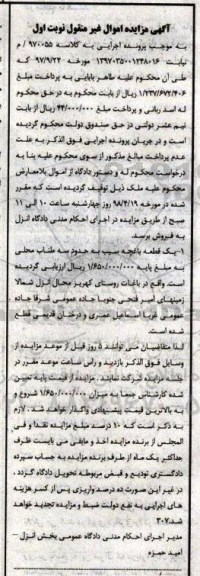 آگهی مزایده اموال غیر منقول نوبت اول
به موجب پرونده اجرایی به کلاسه ۹۷۰۰۵۵ / م
نیابت ۱۳۹۷۰۳۵۰۰۱۲۳۸۰۱۶ مورخه ۹۷/۹/۲۲ که
طی آن محکوم علیه طاهر بابایی به پرداخت مبلغ
۱/۲۳۷/۶۷۲/۴۰۶ ریال از بابت محکوم به در حق محکوم
له اسد ربانی و پرداخت مبلغ ۴۴/۰۰۰/۰۰۰ ریال از بابت
نیم عشر دولتی در حق صندوق دولت محکوم گردیده
است و در جریان پرونده اجرایی فوق الذکر به علت
عدم پرداخت مبالغ مذکور از سوی محکوم علیه بنا به
درخواست محکوم له و دستور دادگاه از اموال بلامعارض
محکوم علیه ملک ذیل توقیف گردیده است که مقرر
شده در مورخه ۹۸/۴/۱۹ روز چهارشنبه ساعت ۱۰ الی ۱۱
صبح از طریق مزایده در اجرای احکام مدنی دادگاه انزل
به فروش برسد.
۱- یک قطعه باغچه سیب به حدود سه طناب محلی
به مبلغ پایه ۱/۶۵۰/۰۰۰/۰۰۰ ریال ارزیابی گردیده
است. واقع در باغات روستای کهریز محال انزل شمالا
زمینهای امیر فتحی جنوبا جاده عمومی شرقا جاده
عمومی غربا اسماعیل عمری و درختان قدیمی قطع
شده است.
لذا متقاضیان می توانند ۵ روز قبل از موعد مزایده از
وسایل فوق الذکر بازدید و راس ساعت موعد مقرر در
جلسه مزایده شرکت نمایند. مزایده از قیمت پایه تعیین
شده کارشناس جمعا به میزان ۱/۶۵۰/۰۰۰/۰۰۰ شروع و
به بالاترین قیمت پیشنهادی واگذار خواهد شد. لازم
به ذکر است که ۱۰ درصد مبلغ مزایده نقدا و فی
المجلس از برنده مزایده اخذ و مابقی می بایست ظرف
حداکثر یک ماه از طرف برنده مزایده به حساب سپرده
دادگستری تودیع و قبض مربوطه تحویل دادگاه گردد،
در غیر این صورت ده درصد واریزی پس از کسر هزینه
های اجرایی به نفع دولت ضبط و مزایده تجدید خواهد
شد ۳۰۷
مدیر اجرای احکام مدنی دادگاه عمومی بخش انزل –
امید حمزه